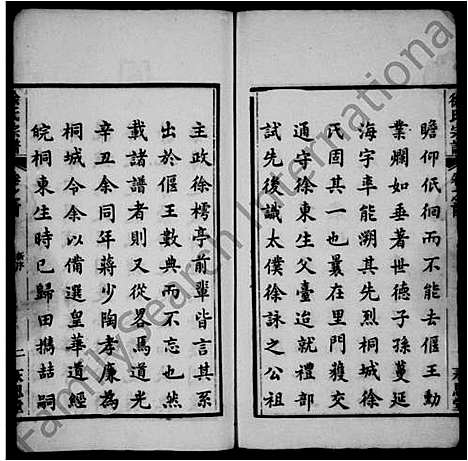 瞻仰低徊而不能去偃王勳
業爛如垂著世德子孫蔓延
海宇率能溯其先烈桐城徐
氏固其一也曩在里門獲交
通守徐東生父臺迨就禮部
試先後識太僕徐詠之公祖
主政徐樗亭前輩皆言其系
出於偃王數典而不忘也然
載諸譜者則又從畧焉道光
辛丑余同年蔣少陶孝廉為
桐城令余以備選皇華道經
皖桐東生時已歸田擕喆嗣
徐氏宗譜
FamilySearch International